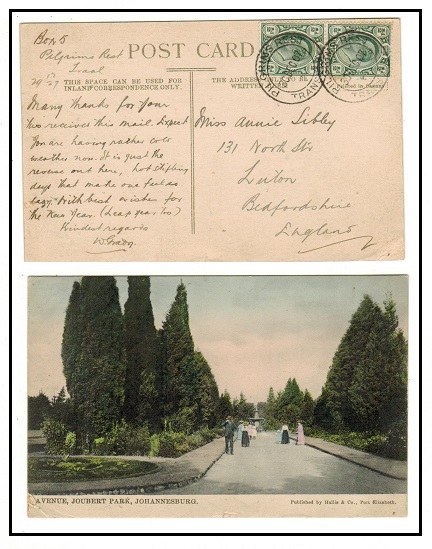 Box 5
Pilgrims Rest
POST CARD
THIS SPACE CAN BE USED FOR
INLAND CORRESPONDENCE ONLY.
THE ADDRESS ONLY
WRITTEN
Many thanks for your
two receives this mail. Expect
you are having rather cold
weather now. It is just the
reverse out here, hot stifling
days that make one feel so
lazy. With best wishes for
the New Year. (Leap year too)
Kindest regards
Miss Annie Sibley
131 North Str
Luton
Bedfordshire
England
AVENUE, JOUBERT PARK, JOHANNESBURG.
Published by Hallis & Co., Port Elizabeth.